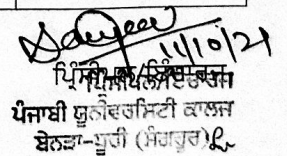 11/10/21
ਪ੍ਰਿੰਸੀਪਲ/ਇੰਚਾਰਜ
ਪੰਜਾਬੀ ਯੂਨੀਵਰਸਿਟੀ ਕਾਲਜ
ਬੇਨੜਾ-ਧੂਰੀ (ਸੰਗਰੂਰ)